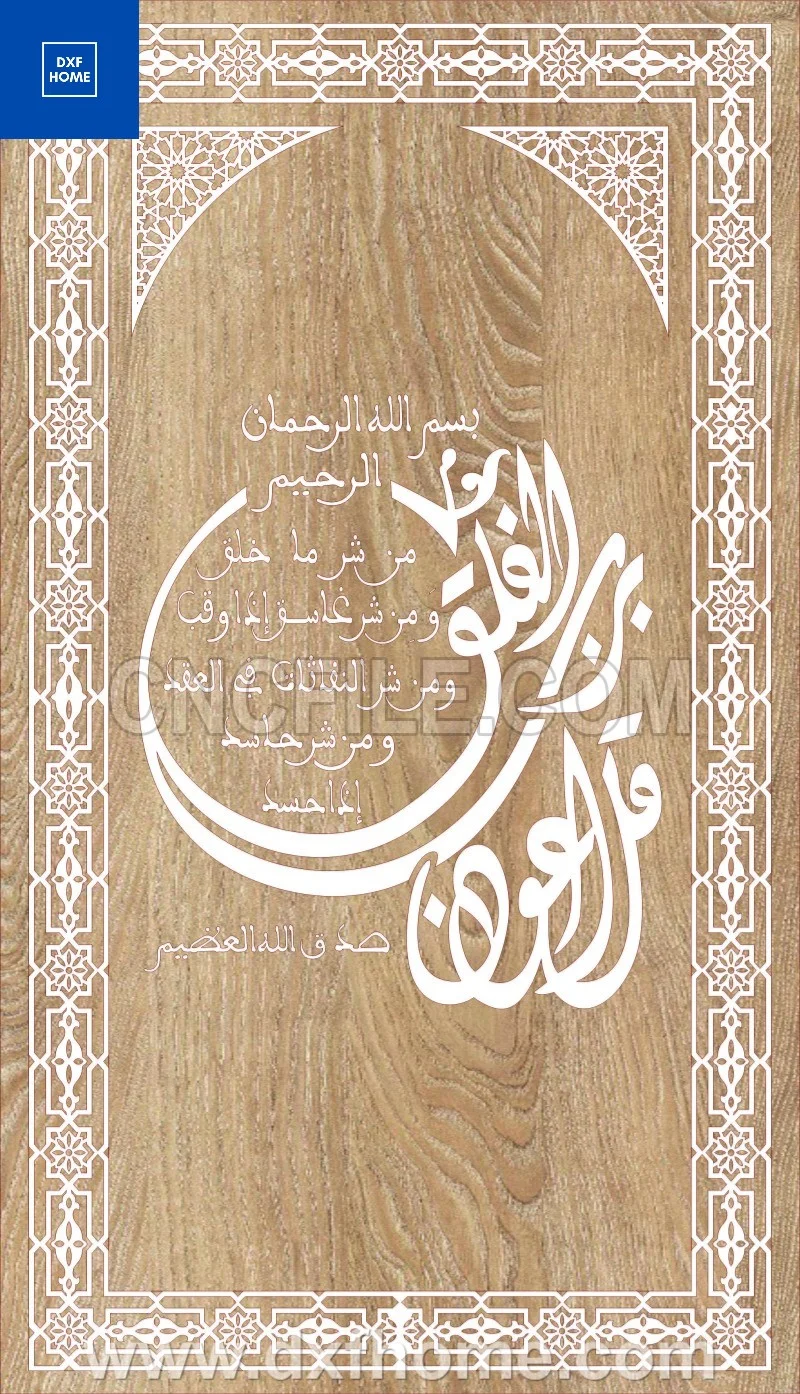 DXF
HOME
بسم الله الرحمان
الرحيم
قل أعوذ
برب الفلق
من شر ما خلق
ومن شر غاسق إذا وقب
ومن شر النفاثات في العقد
ومن شر حاسد
إذا حسد
صدق الله العظيم
CNCFILE.COM
www.dxfhome.com